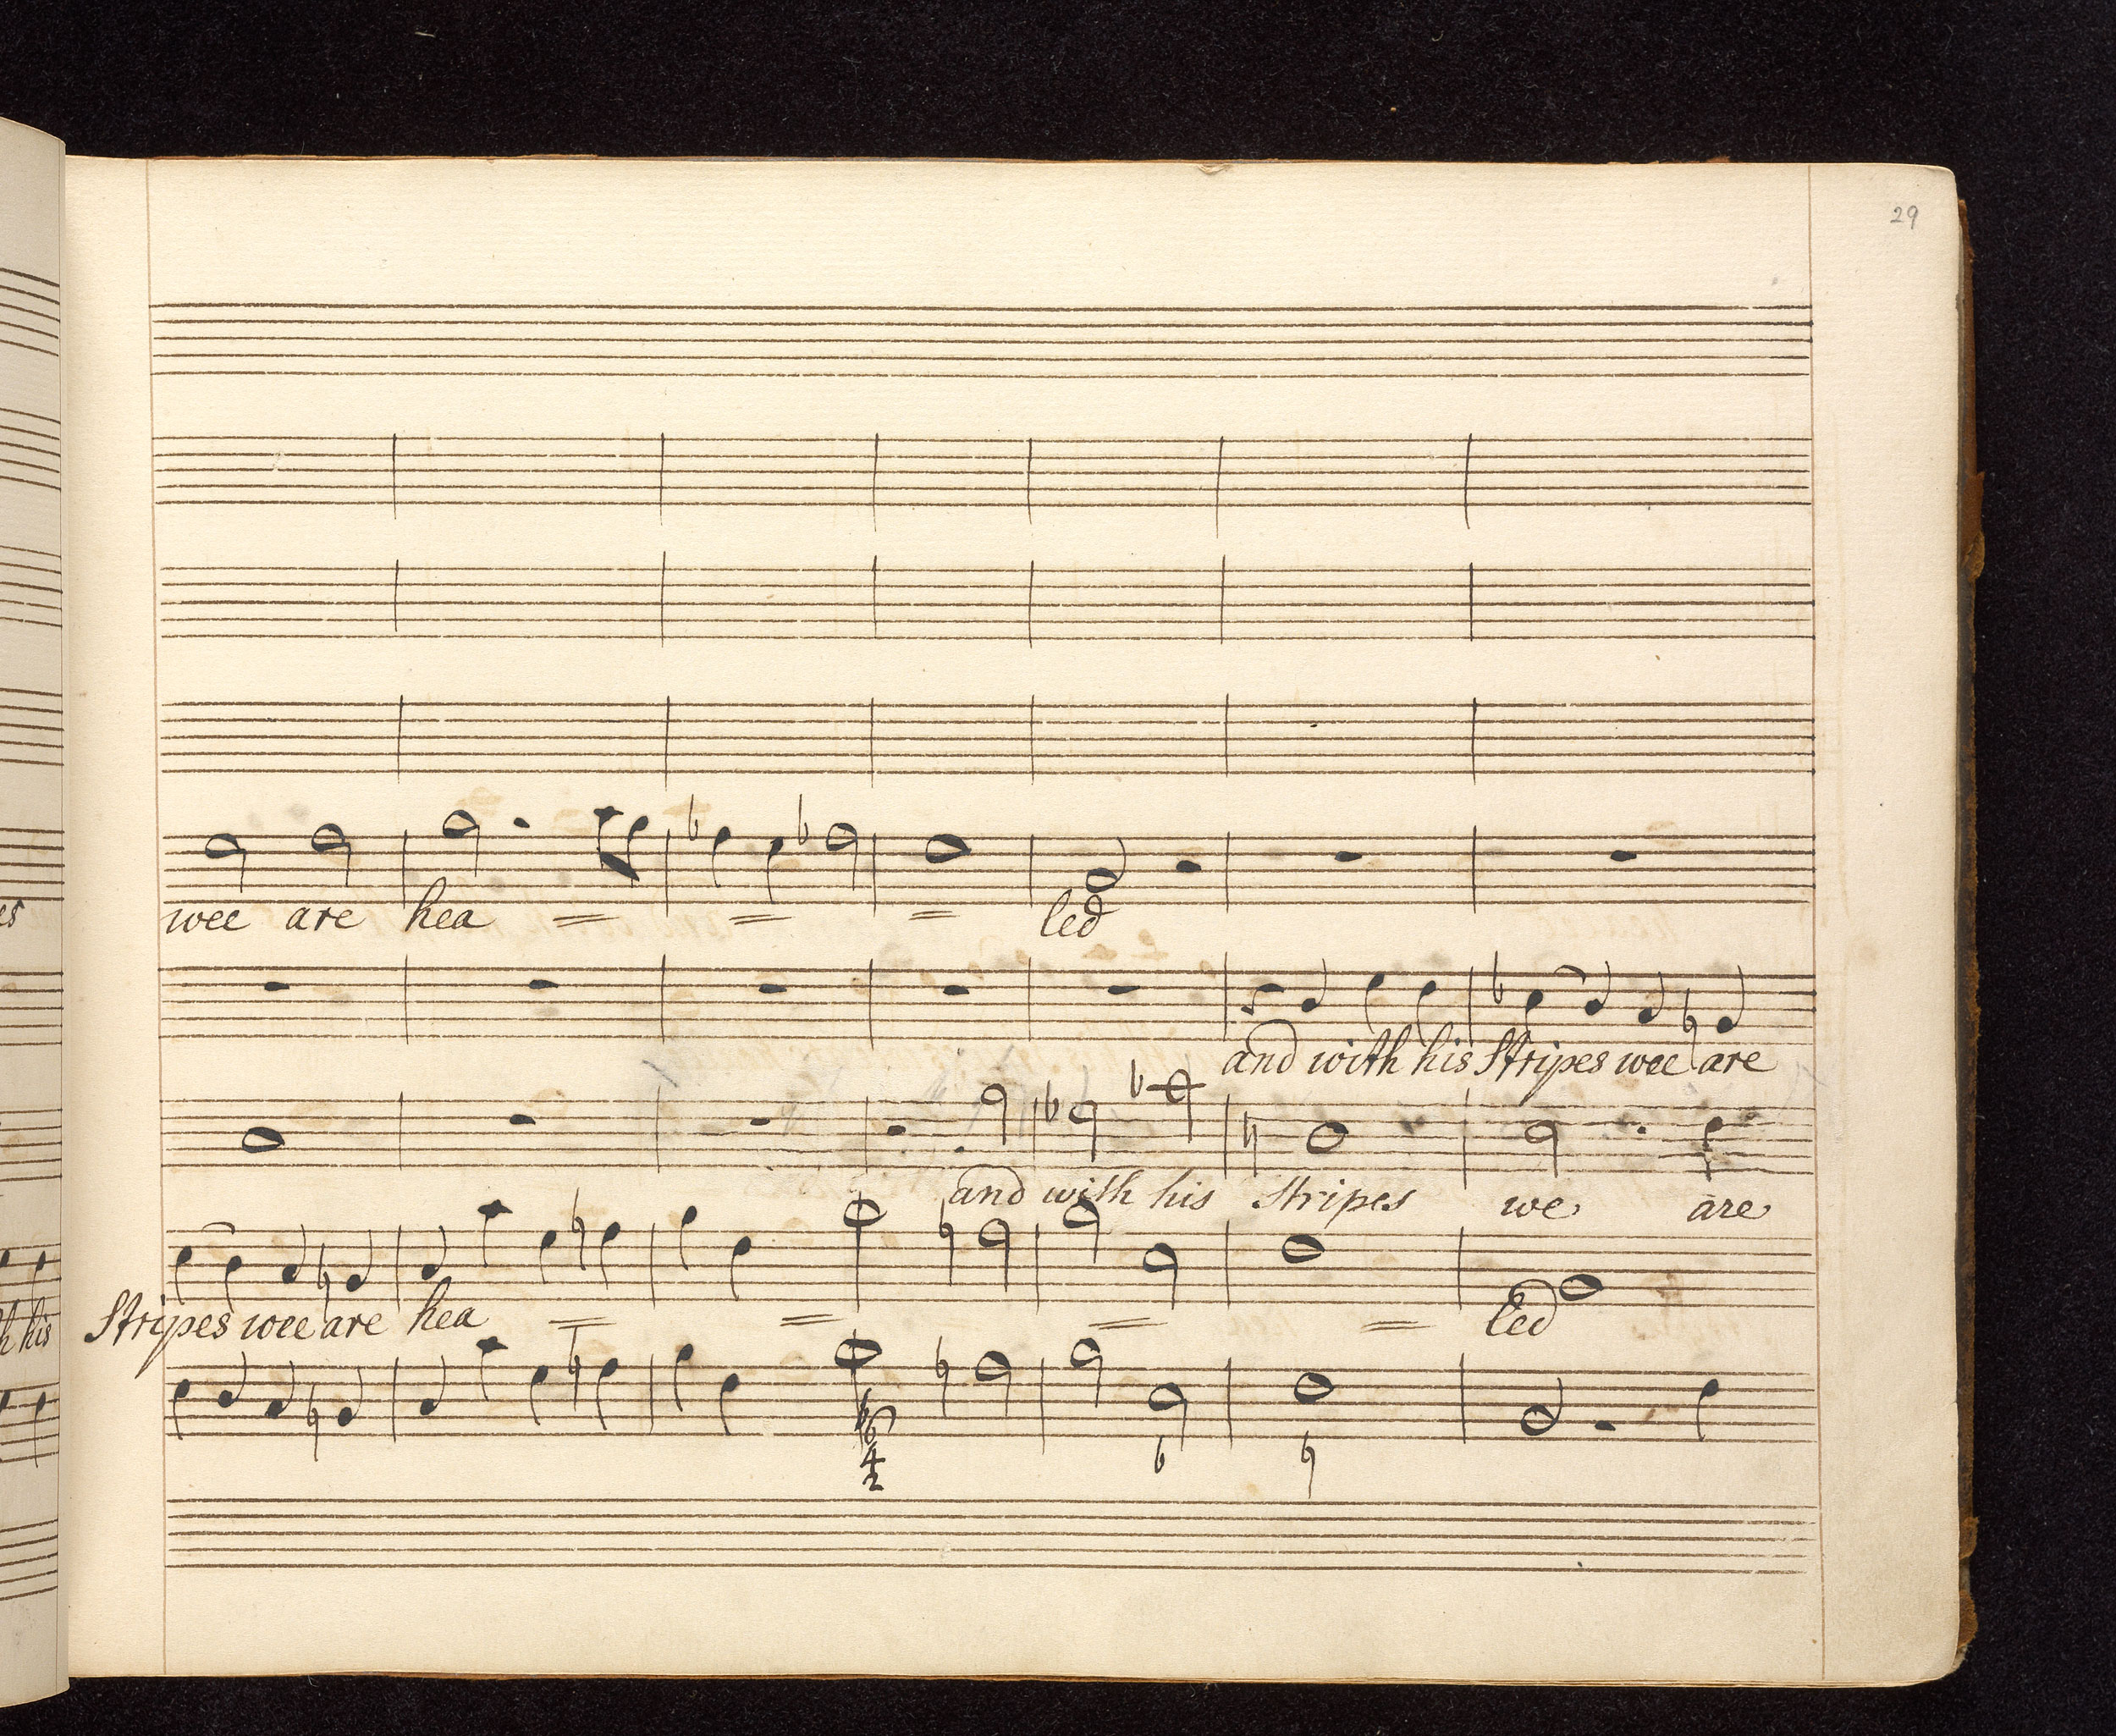 29
wee are hea = = = led
es
and with his Stripes wee are
and with his Stripes we are
h his
Stripes wee are hea = = = = led
6
4
2